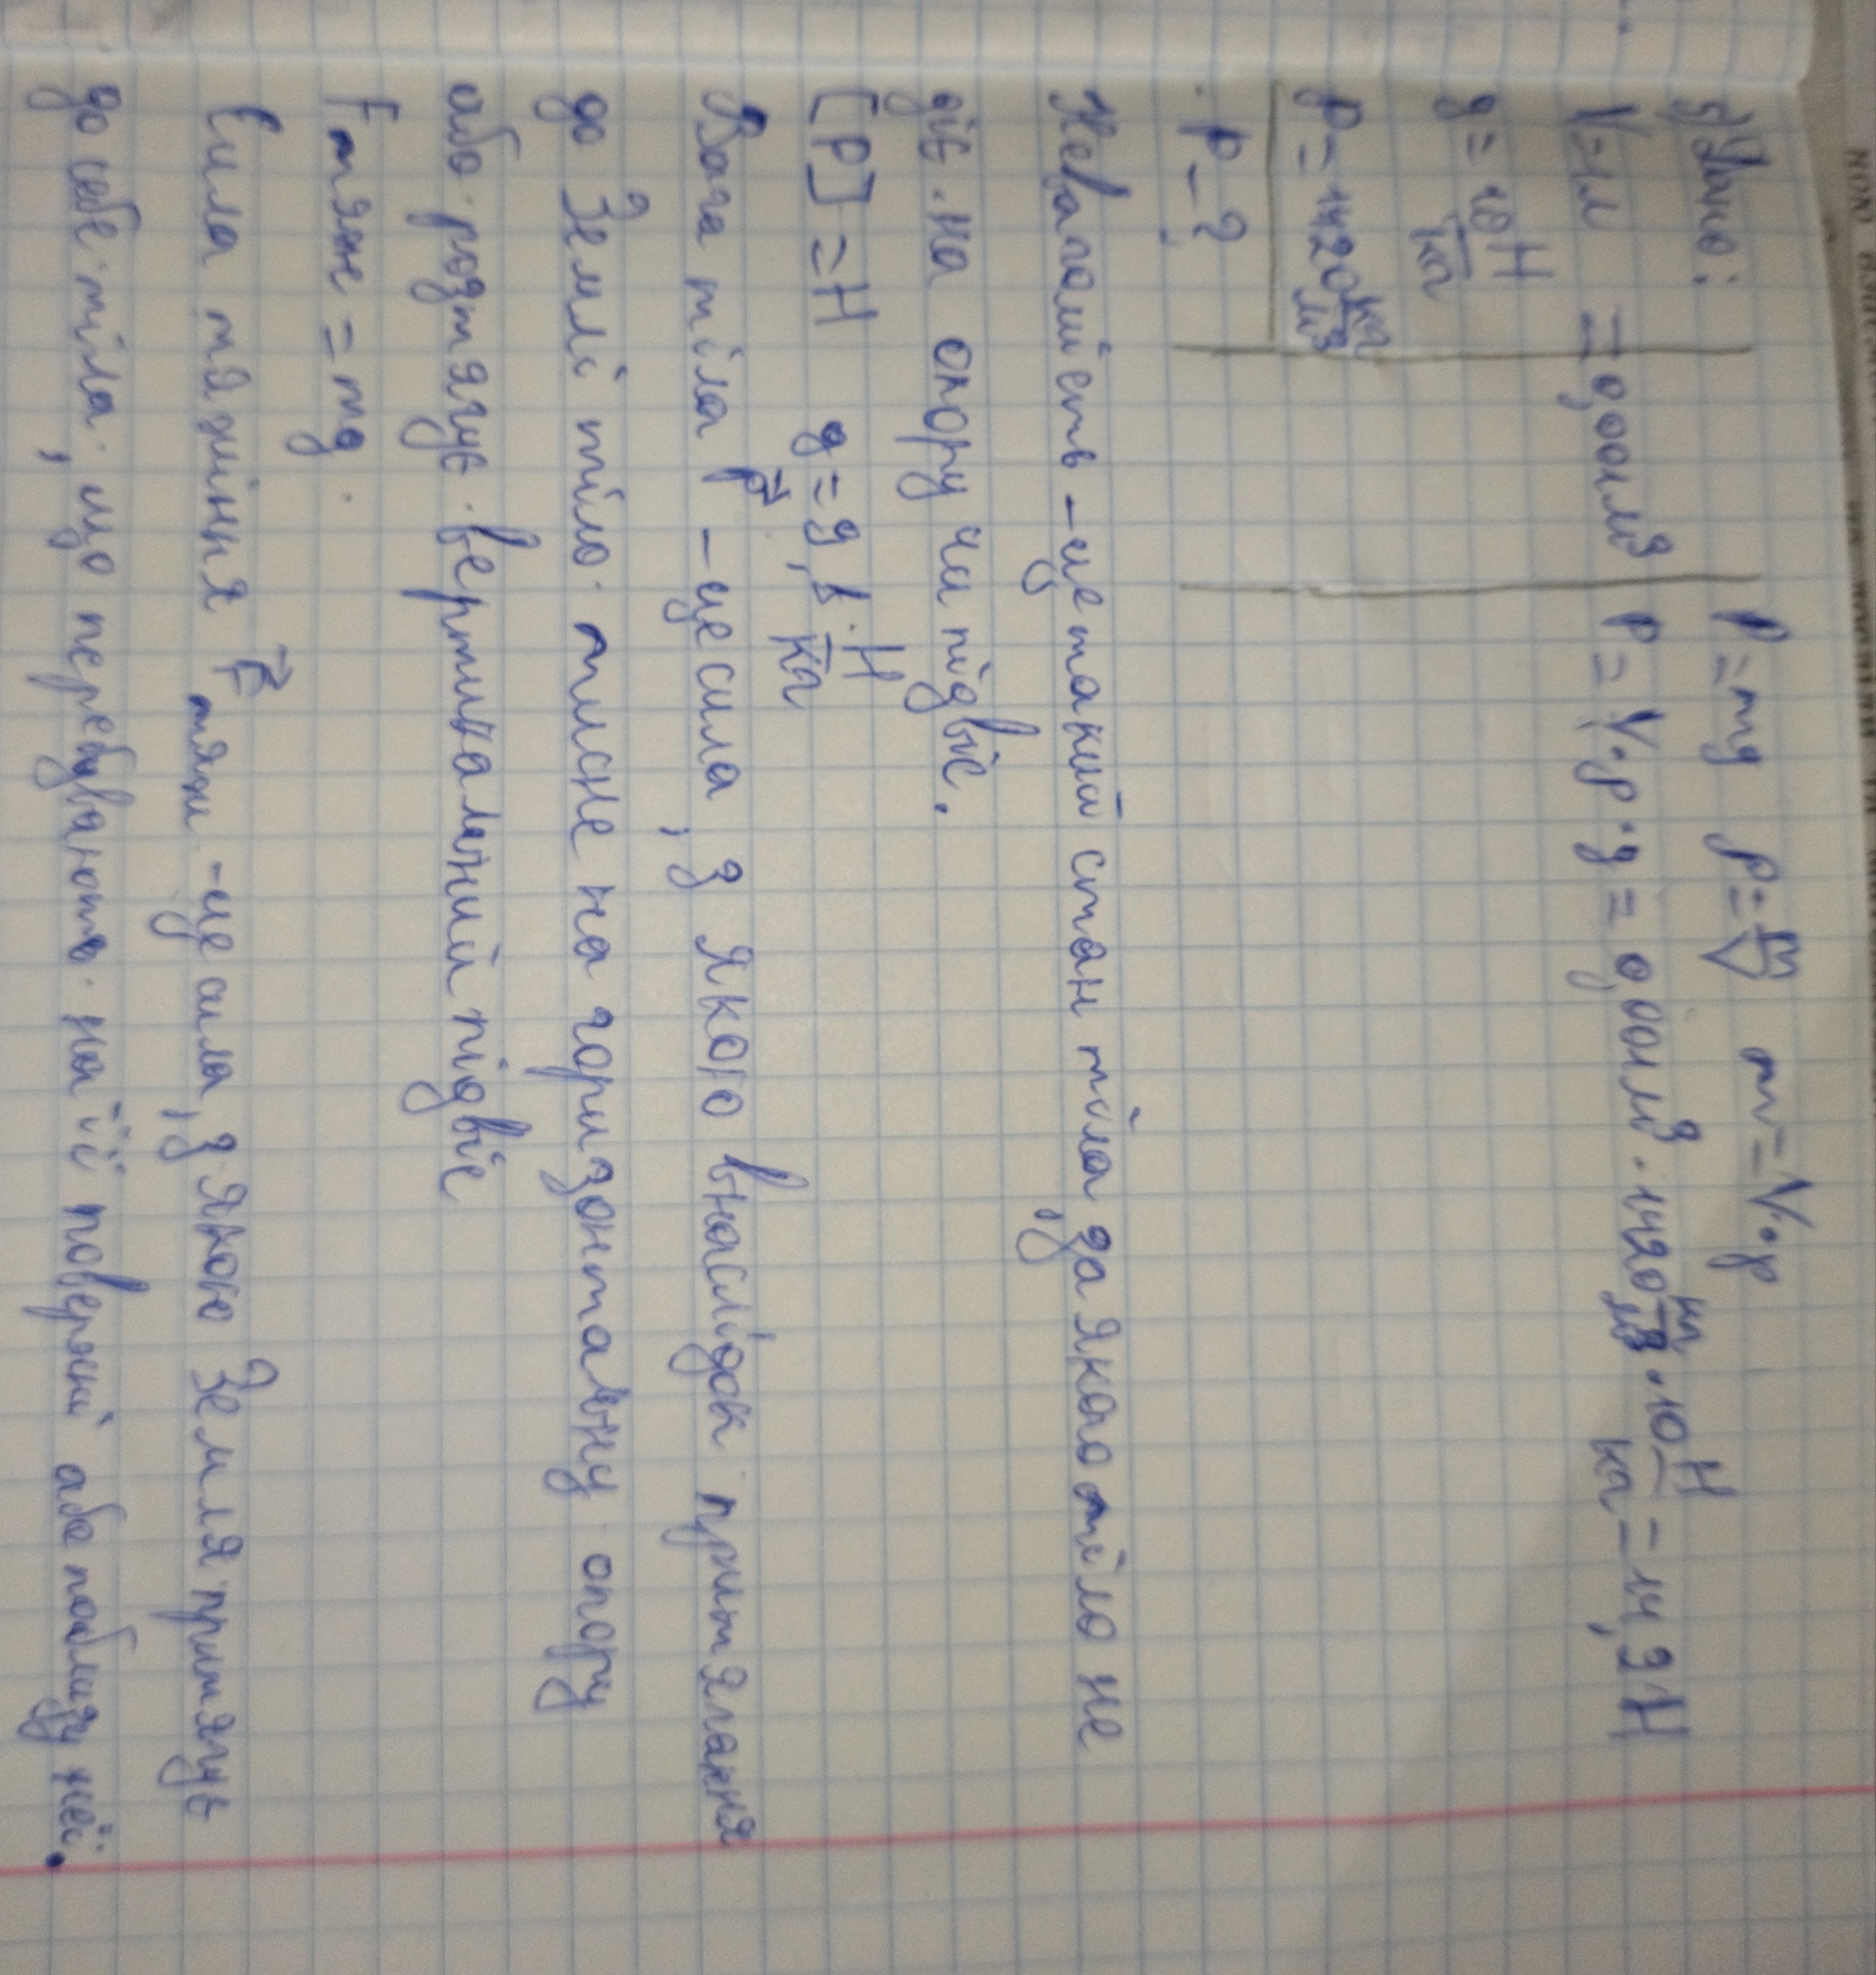 Дано:
V=1л =0,001м³
g=10 Н/кг
ρ=1420 кг/м³
P-?
P=mg ρ=m/V m=V·ρ
P=V·ρ·g=0,001м³·1420 кг/м³·10 Н/кг=14,2Н
Невагомість -це такий стан тіла, за якого тіло не
діє на опору чи підвіс.
[P]=Н g=9,8 Н/кг
Вага тіла P⃗ -це сила, з якою внаслідок притягання
до Землі тіло тисне на горизонтальну опору
або розтягує вертикальний підвіс
Fтяж=mg.
Сила тяжіння F⃗ тяж -це сила, з якою Земля притягує
до себе тіла, що перебувають на її поверхні або поблизу неї.